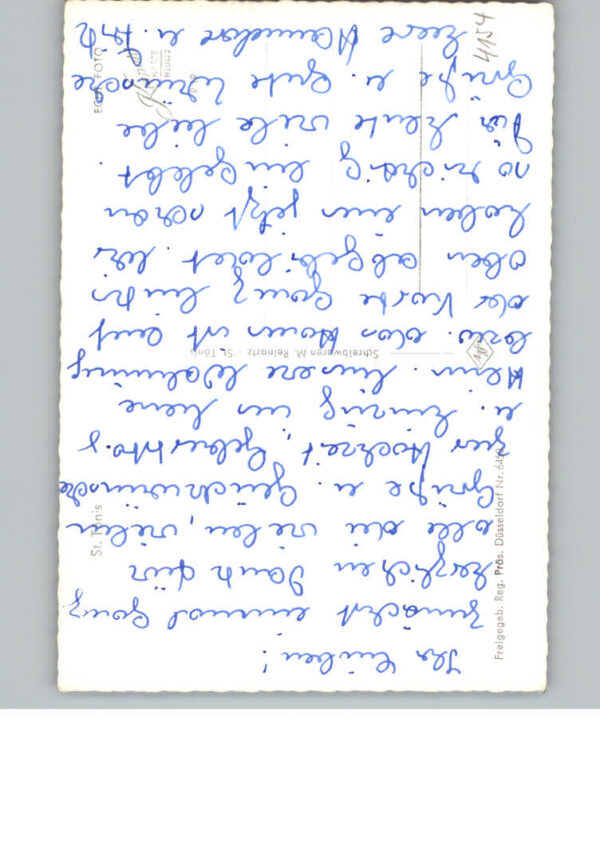 Ihr Lieben!
zunächst einmal Ganz
herzlichen Dank für
alle die vielen, vielen
Grüße u. Glückwünsche
zur Hochzeit, Geburtstag
u. Einzug ins neue
Heim. Unsere Wohnung
bzw. das Haus ist auf
der Karte Ganz links
oben abgebildet. Wir
haben uns jetzt schon
so richtig eingelebt.
Für heute viele liebe
Grüße u. Gute Wünsche
Eure Hannelore u. Fritz
4154
St. Tönis
Schreibwaren M. Reinartz · St. Tönis
Freigegeb. Reg. Präs. Düsseldorf Nr.
ECHT FOTO